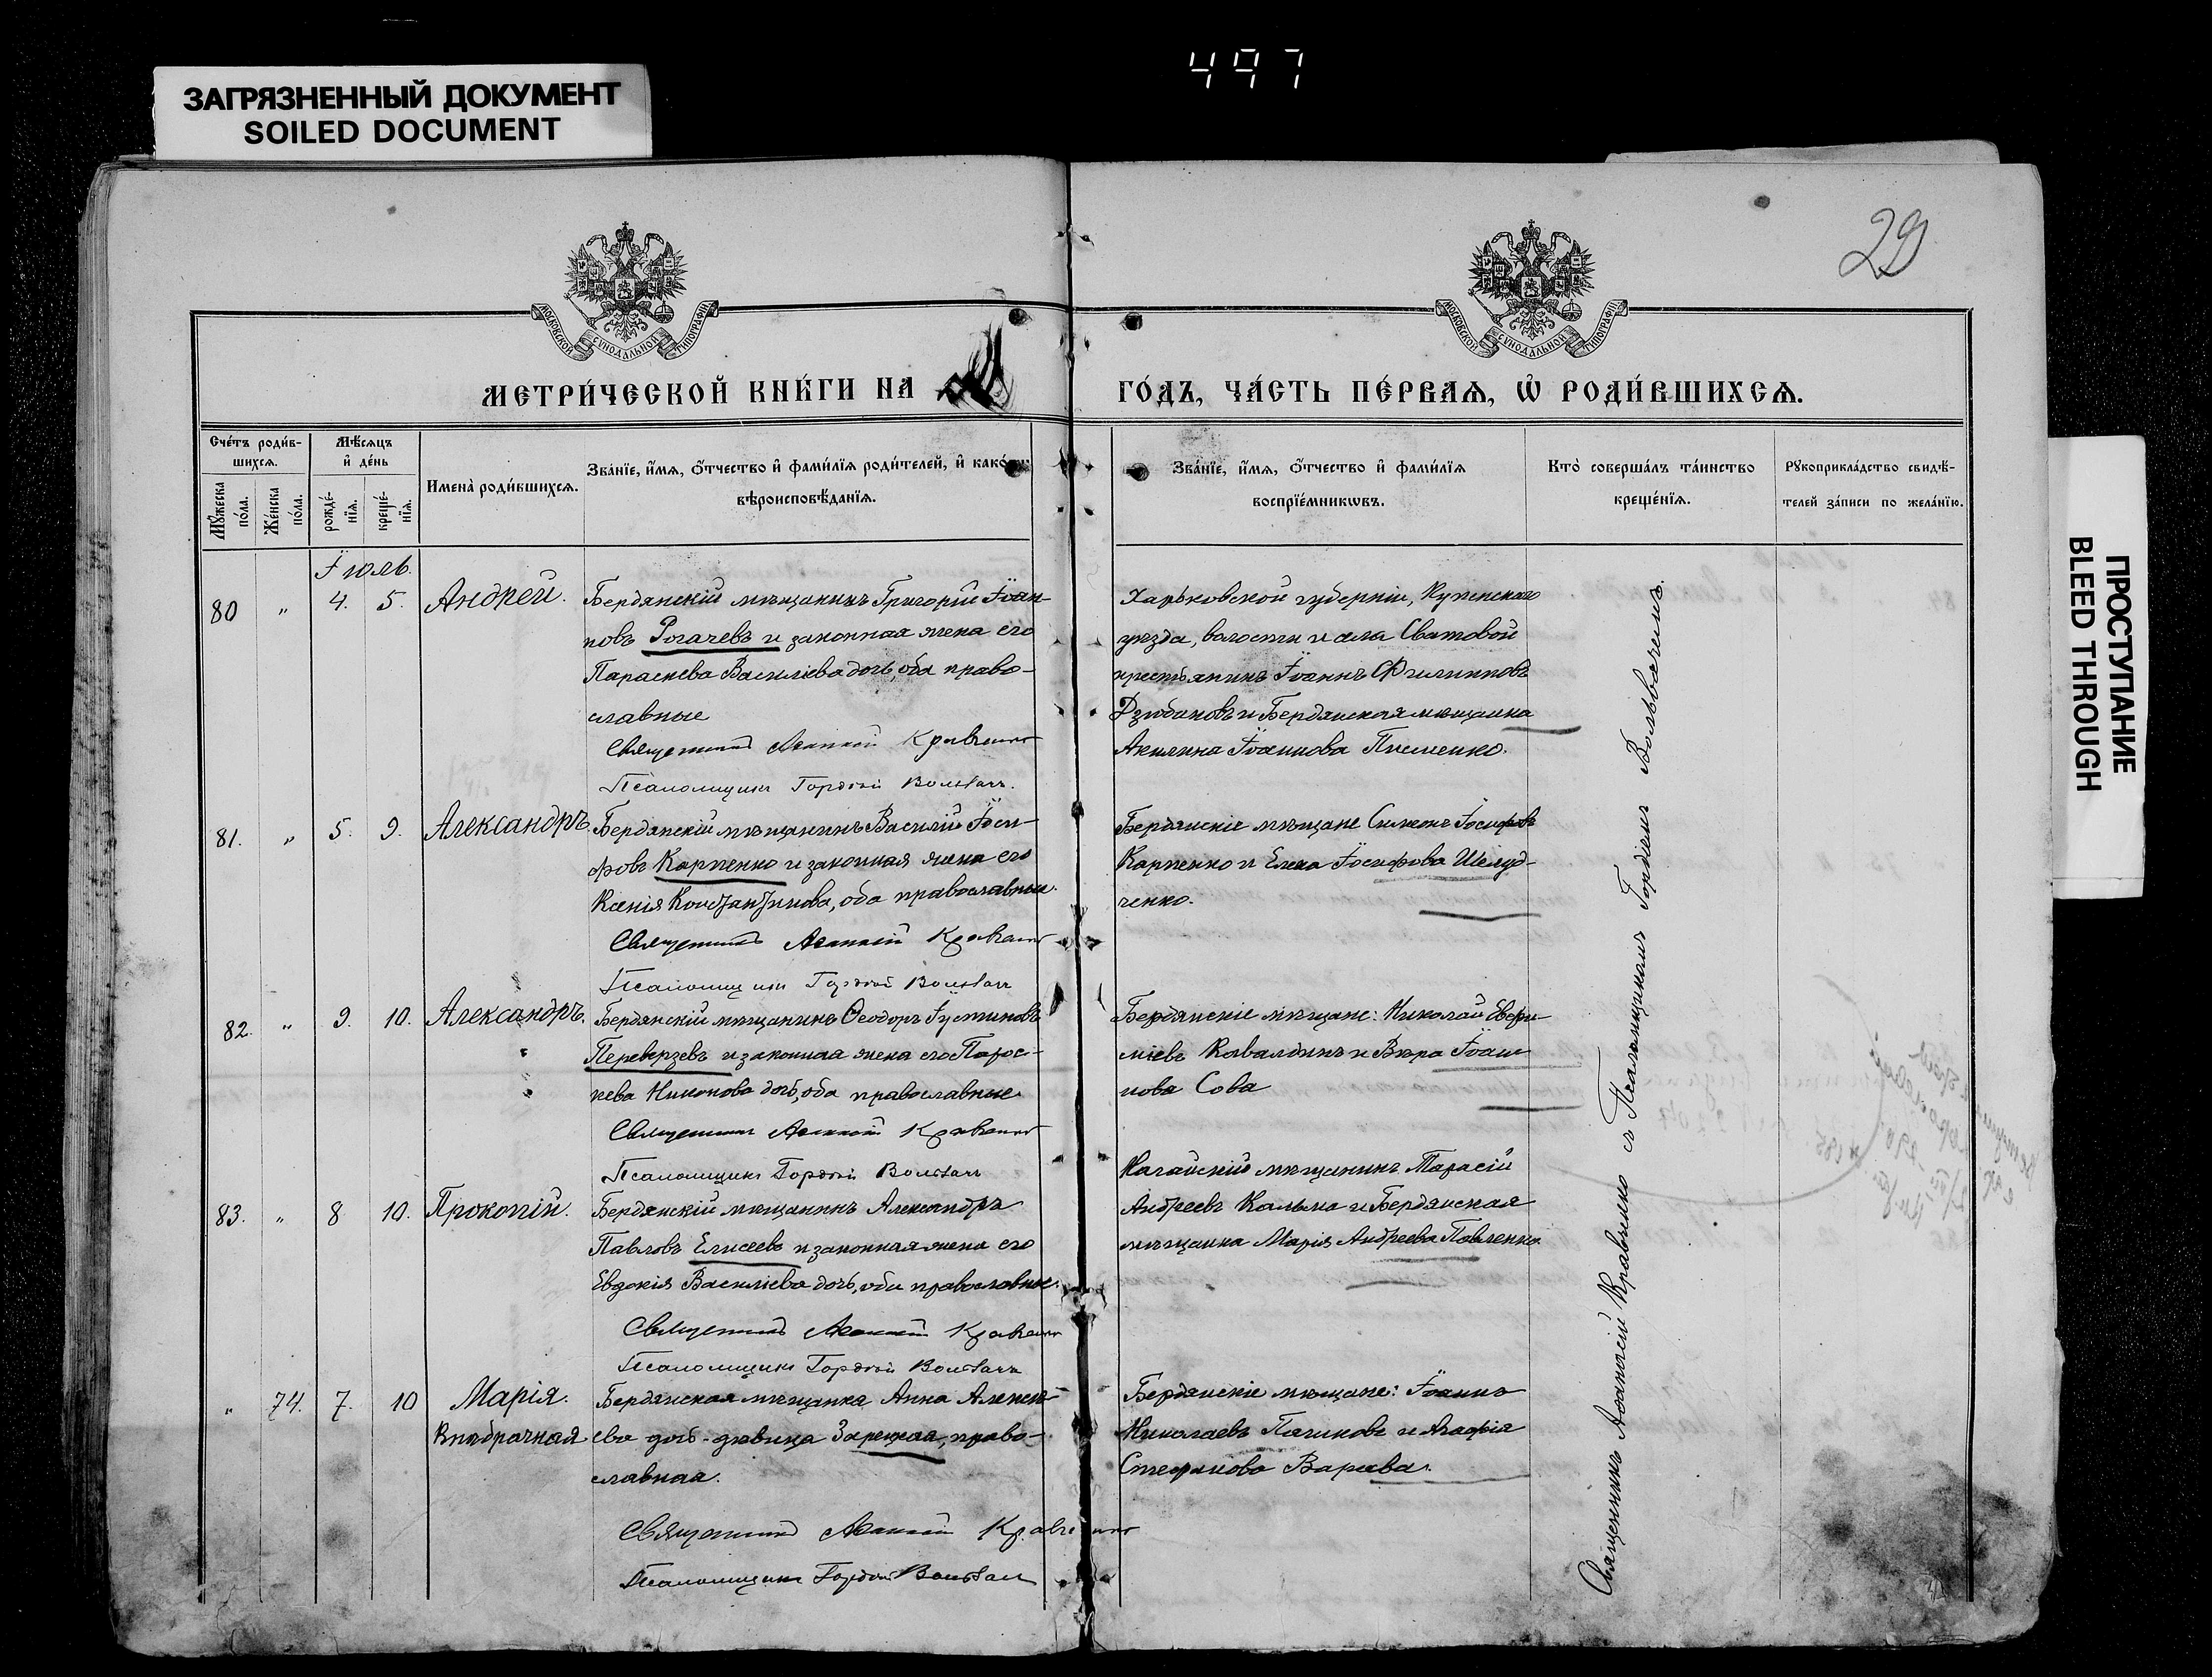 497
ЗАГРЯЗНЕННЫЙ ДОКУМЕНТ
SOILED DOCUMENT
29
МОСКОВСКОЙ СУНОДАЛЬНОЙ ТИПОГРАФІИ
МОСКОВСКОЙ СУНОДАЛЬНОЙ ТИПОГРАФІИ
МЕТРИ́ЧЕСКОЙ КНИ́ГИ НА
ГО́ДЪ, ЧА́СТЬ ПЕ́РВАѦ, Ѡ РОДИ́ВШИХСѦ.
Сче́тъ роди́в-
шихсѧ.
Мꙋ́жеска
по́ла.
Же́нска
по́ла.
Мѣ́сѧцъ
и҆ де́нь
рожде́-
нїѧ.
креще́-
нїѧ.
Имена̀ роди́вшихсѧ.
Зва́нїе, и҆́мѧ, ѻ҆́тчество и҆ фами́лїѧ роди́телей, и҆ како́й
вѣроисповѣ́данїѧ.
Зва́нїе, и҆́мѧ, ѻ҆́тчество и҆ фами́лїѧ
воспрїе́мникѡвъ.
Кто̀ соверша́лъ та́инство
креще́нїѧ.
Рꙋкоприкла́дство свидѣ́-
телей за́писи по жела́нїю.
Іюль.
80 „ 4. 5. Андрей.
Бердянскій мѣщанинъ Григорій Іоан-
новъ Рогачевъ и законная жена его
Параскева Василіева дочь, оба право-
славные
Священникъ Аѳанасій Кравченко
Псаломщикъ Гордій Вольвачъ.
Харьковской губерніи, Купянскаго
уѣзда, волости и села Сватовой
крестьянинъ Іоаннъ Филипповъ
Дзюбановъ и Бердянская мѣщанка
Акилина Іоаннова Писменко.
81. „ 5. 9. Александръ.
Бердянскій мѣщанинъ Василій Іоси-
фовъ Карпенко и законная жена его
Ксенія Константинова, оба православные.
Священникъ Аѳанасій Кравченко
Псаломщикъ Гордій Вольвачъ
Бердянскіе мѣщане Симеонъ Іосифовъ
Карпенко и Елена Іосифова Шелуд-
ченко.
82. „ 9. 10. Александръ.
Бердянскій мѣщанинъ Ѳеодоръ Іустиновъ
Переверзевъ и законная жена его Парас-
кева Никонова дочь, оба православные
Священникъ Аѳанасій Кравченко
Псаломщикъ Гордій Вольвачъ
Бердянскіе мѣщане: Николай
Ковалдинъ и Вѣра Іоан-
нова Сова
83. „ 8 10. Прокопій.
Бердянскій мѣщанинъ Александръ
Павловъ Елисеевъ и законная жена его
Евдокія Василіева дочь, оба православные.
Священникъ Аѳанасій Кравченко
Псаломщикъ Гордій Вольвачъ
Ногайскій мѣщанинъ Тарасій
Андреевъ Кальма и Бердянская
мѣщанка Марія Андреева Павленко.
„ 74. 7. 10 Марія.
Внѣбрачная
Бердянская мѣщанка Анна Алексѣ-
ева дочь-дѣвица Зарецкая, право-
славная.
Священникъ Аѳанасій Кравченко
Псаломщикъ Гордій Вольвачъ
Бердянскіе мѣщане: Іоаннъ
Николаевъ Пачиковъ и Агафія
Стефанова Варава.
Священникъ Аѳанасій Кравченко съ Псаломщикомъ Гордіемъ Вольвачемъ.
ПРОСТУПАНИЕ
BLEED THROUGH